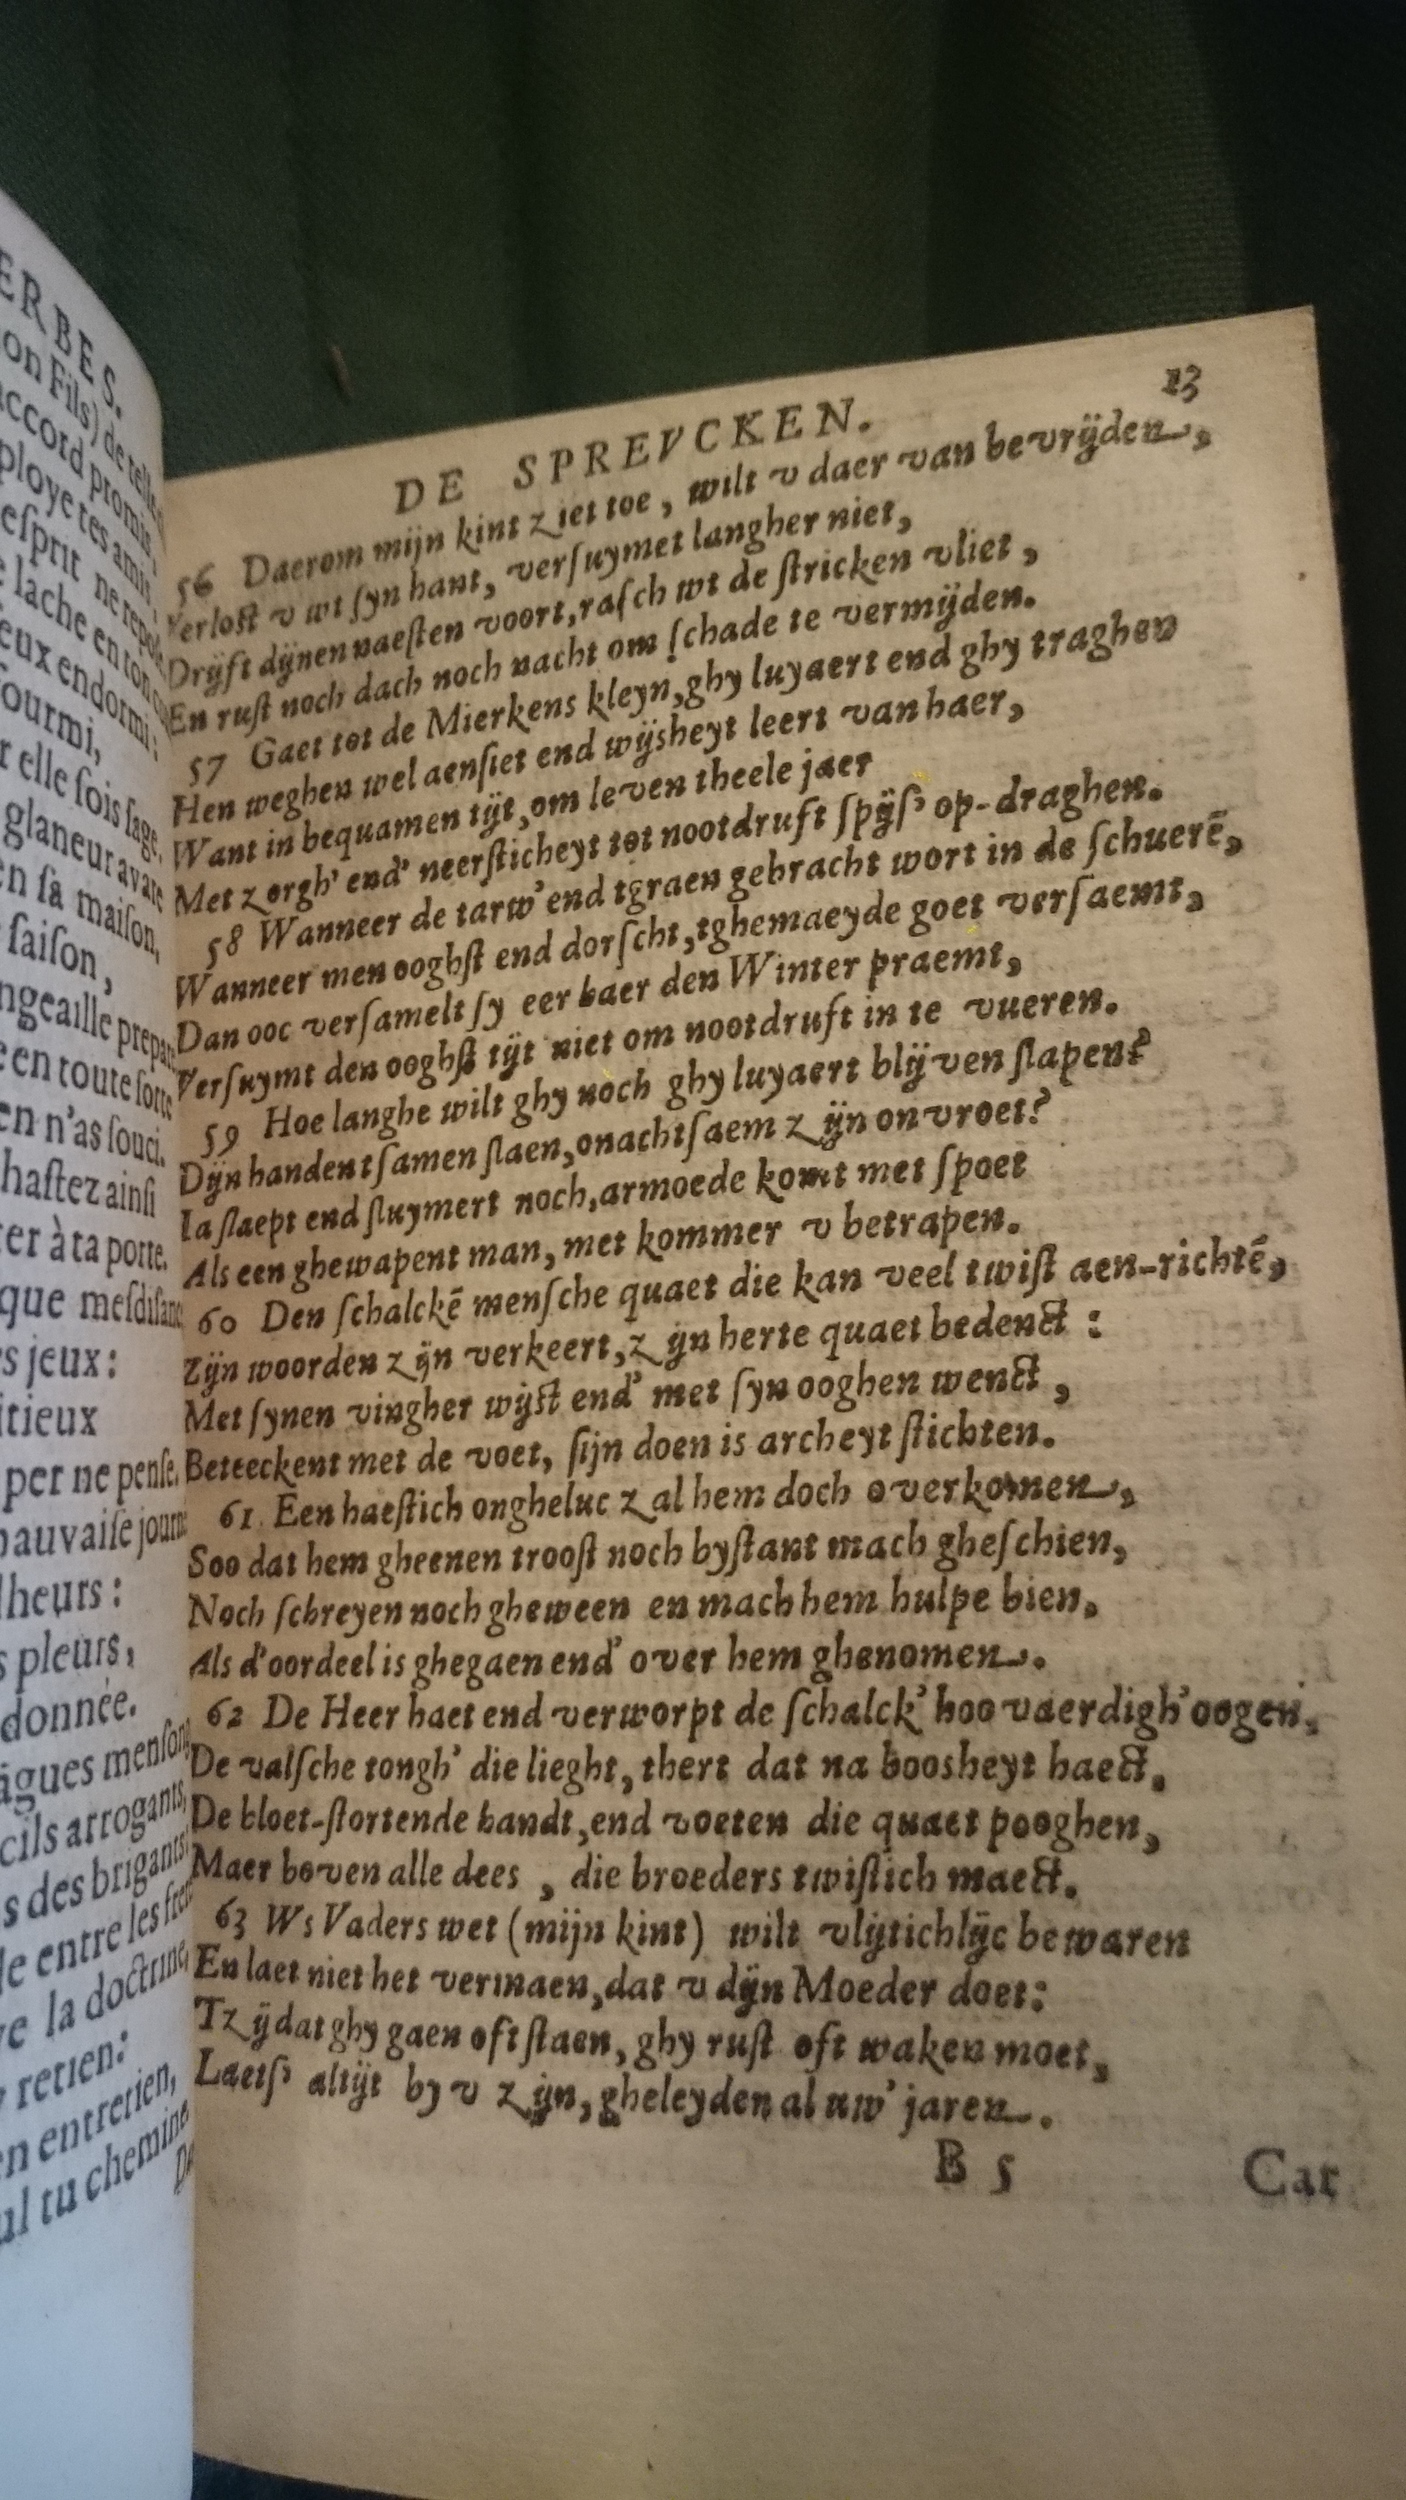 ERBES.
on Fils) de telle
accord promis,
ploye tes amis,
esprit ne repose
lache en ton
eux endormi:
fourmi,
r elle sois sage,
glaneur avare
en sa maison,
saison,
ngeaille prepare
en toute sorte
en n'as souci.
hastez ainsi
ter à ta porte.
que mesdisance
s jeux:
itieux
per ne pense.
mauvaise journ
lheurs:
s pleurs,
donnée.
agues menson
cils arrogants,
s des brigants
de entre les frer
ve la doctrine,
retien:
en entretien,
ul tu chemine
DE SPREVCKEN. 13
56 Daerom mijn kint ziet toe, wilt v daer van bevrijden,
Verlost v wt syn hant, versuymet langher niet,
Drijft dijnen naesten voort, rasch wt de stricken vliet,
En rust noch dach noch nacht om schade te vermijden.
57 Gaet tot de Mierkens kleyn, ghy luyaert end ghy traghen
Hen weghen wel aensiet end wijsheyt leert van haer,
Want in bequamen tijt, om leven theele jaer
Met zorgh' end' neersticheyt tot nootdruft spijs' op-draghen.
58 Wanneer de tarw' end tgraen gebracht wort in de schuerē,
Wanneer men ooghst end dorscht, tghemaeyde goet versaemt,
Dan ooc versamelt sy eer haer den Winter praemt,
Versuymt den ooghst tijt niet om nootdruft in te vueren.
59 Hoe langhe wilt ghy noch ghy luyaert blijven slapen?
Dijn handen tsamen slaen, onachtsaem zijn onvroet?
Ia slaept end sluymert noch, armoede komt met spoet
Als een ghewapent man, met kommer v betrapen.
60 Den schalckē mensche quaet die kan veel twist aen-richtē,
Zijn woorden zijn verkeert, zijn herte quaet bedenct:
Met synen vingher wijst end' met syn ooghen wenct,
Beteeckent met de voet, sijn doen is archeyt stichten.
61 Een haestich ongheluc zal hem doch overkomen,
Soo dat hem gheenen troost noch bystant mach gheschien,
Noch schreyen noch gheween en mach hem hulpe bien,
Als d'oordeel is ghegaen end' over hem ghenomen.
62 De Heer haet end verworpt de schalck' hoovaerdigh' oogen,
De valsche tongh' die lieght, thert dat na boosheyt haect,
De bloet-stortende handt, end voeten die quaet pooghen,
Maer boven alle dees, die broeders twistich maect.
63 Ws Vaders wet (mijn kint) wilt vlijtichlijc bewaren
En laet niet het vermaen, dat v dijn Moeder doet:
Tzij dat ghy gaen oft staen, ghy rust oft waken moet,
Laets' altijt by v zijn, gheleyden al uw' jaren.
B 5 Car